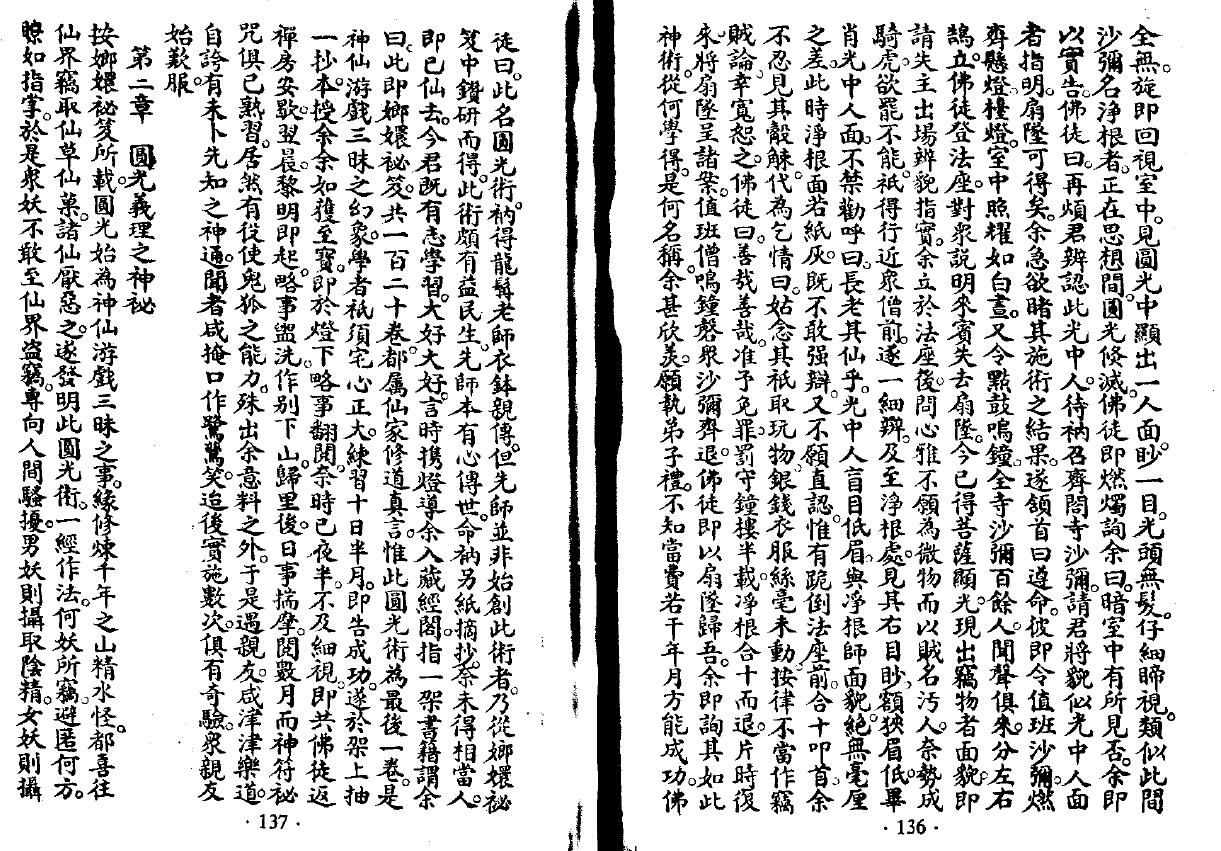 全無。旋即回視室中。見圓光中顯出一人面。眇一目。光頭無髮。仔細睇視。類似此間
沙彌名淨根者。正在思想間。圓光倏滅。佛徒即燃燭詢余曰。暗室中有所見否。余即
以實告。佛徒曰。再煩君辨認此光中人。待衲召齊閤寺沙彌。請君將貌似光中人面
者指明。扇墜可得矣。余急欲睹其施術之結果。遂頷首曰遵命。彼即令值班沙彌。燃
齊懸燈檯燈。室中照耀如白晝。又令點鼓鳴鐘。全寺沙彌百餘人。聞聲俱來。分左右
鵠立。佛徒登法座。對衆說明來賓失去扇墜。今已得菩薩顯光。現出竊物者面貌。即
請失主出場辨貌指實。余立於法座後。問心雅不願為微物而以賊名污人。奈勢成
騎虎。欲罷不能。祇得行近衆僧前。遂一細辨。及至淨根處。見其右目眇。額狹眉低。畢
肖光中人面。不禁勸呼曰。長老其仙乎。光中人盲目低眉。與淨根師面貌。絕無毫厘
之差。此時淨根面若紙灰。既不敢强辯。又不願直認。惟有跪倒法座前。合十叩首。余
不忍見其觳觫。代為乞情曰。姑念其祇取玩物。銀錢衣服。絲毫未動。按律不當作竊
賊論。幸寬恕之。佛徒曰。善哉善哉。准予免罪。罰守鐘樓半載。淨根合十而退。片時復
來。將扇墜呈諸案。值班僧鳴鐘磬。衆沙彌齊退。佛徒即以扇墜歸吾。余即詢其如此
神術。從何學得。是何名稱。余甚欣羡。願執弟子禮。不知當費若干年月。方能成功。佛
·136·
徒曰。此名圓光術。衲得龍髯老師衣鉢親傳。但先師並非始創此術者。乃從嫏嬛祕
笈中鑽研而得。此術頗有益民生。先師本有心傳世。命衲另紙摘抄。奈未得相當人。
即已仙去。今君既有志學習。大好大好。言時攜燈導余入藏經閣。指一架書籍謂余
曰。此即嫏嬛祕笈。共一百二十卷。都屬仙家修道真言。惟此圓光術為最後一卷。是
神仙游戲三昧之幻象。學者祇須宅心正大。練習十日半月。即告成功。遂於架上抽
一抄本。授余。余如獲至寶。即於燈下。略事翻閱。奈時已夜半。不及細視。即共佛徒返
禪房安歇。翌晨。黎明即起。略事盥洗。作別下山。歸里後。日事揣摩。閱數月而神符祕
咒。俱已熟習。居然有役使鬼狐之能力。殊出余意料之外。于是遇親友。咸津津樂道。
自誇有未卜先知之神通。聞者咸掩口作鷺鷥笑。迨後實施數次。俱有奇驗。衆親友
始歎服。
第二章　圓光義理之神祕
按嫏嬛祕笈所載。圓光始為神仙游戲三昧之事。緣修煉千年之山精水怪。都喜往
仙界竊取仙草仙菓。諸仙厭惡之。遂發明此圓光術。一經作法。何妖所竊。避匿何方。
瞭如指掌。於是衆妖不敢至仙界盜竊。專向人間騷擾。男妖則攝取陰精。女妖則攝
·137·